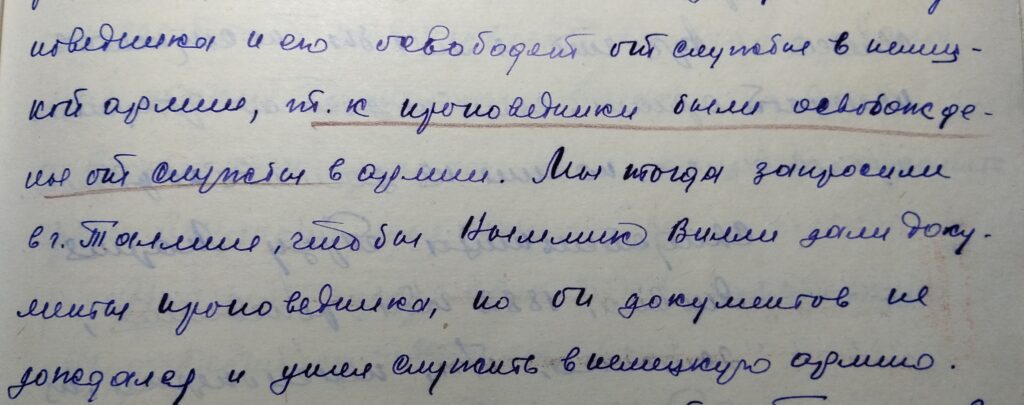 поведника и его освободят от службы в немец-
кой армии, т.к проповедники были освобожде-
ны от службы в армии. Мы тогда запросили
в г. Таллине, чтобы Нымлик Вилли дали доку-
менты проповедника, но он документов не
дождался и ушел служить в немецкую армию.